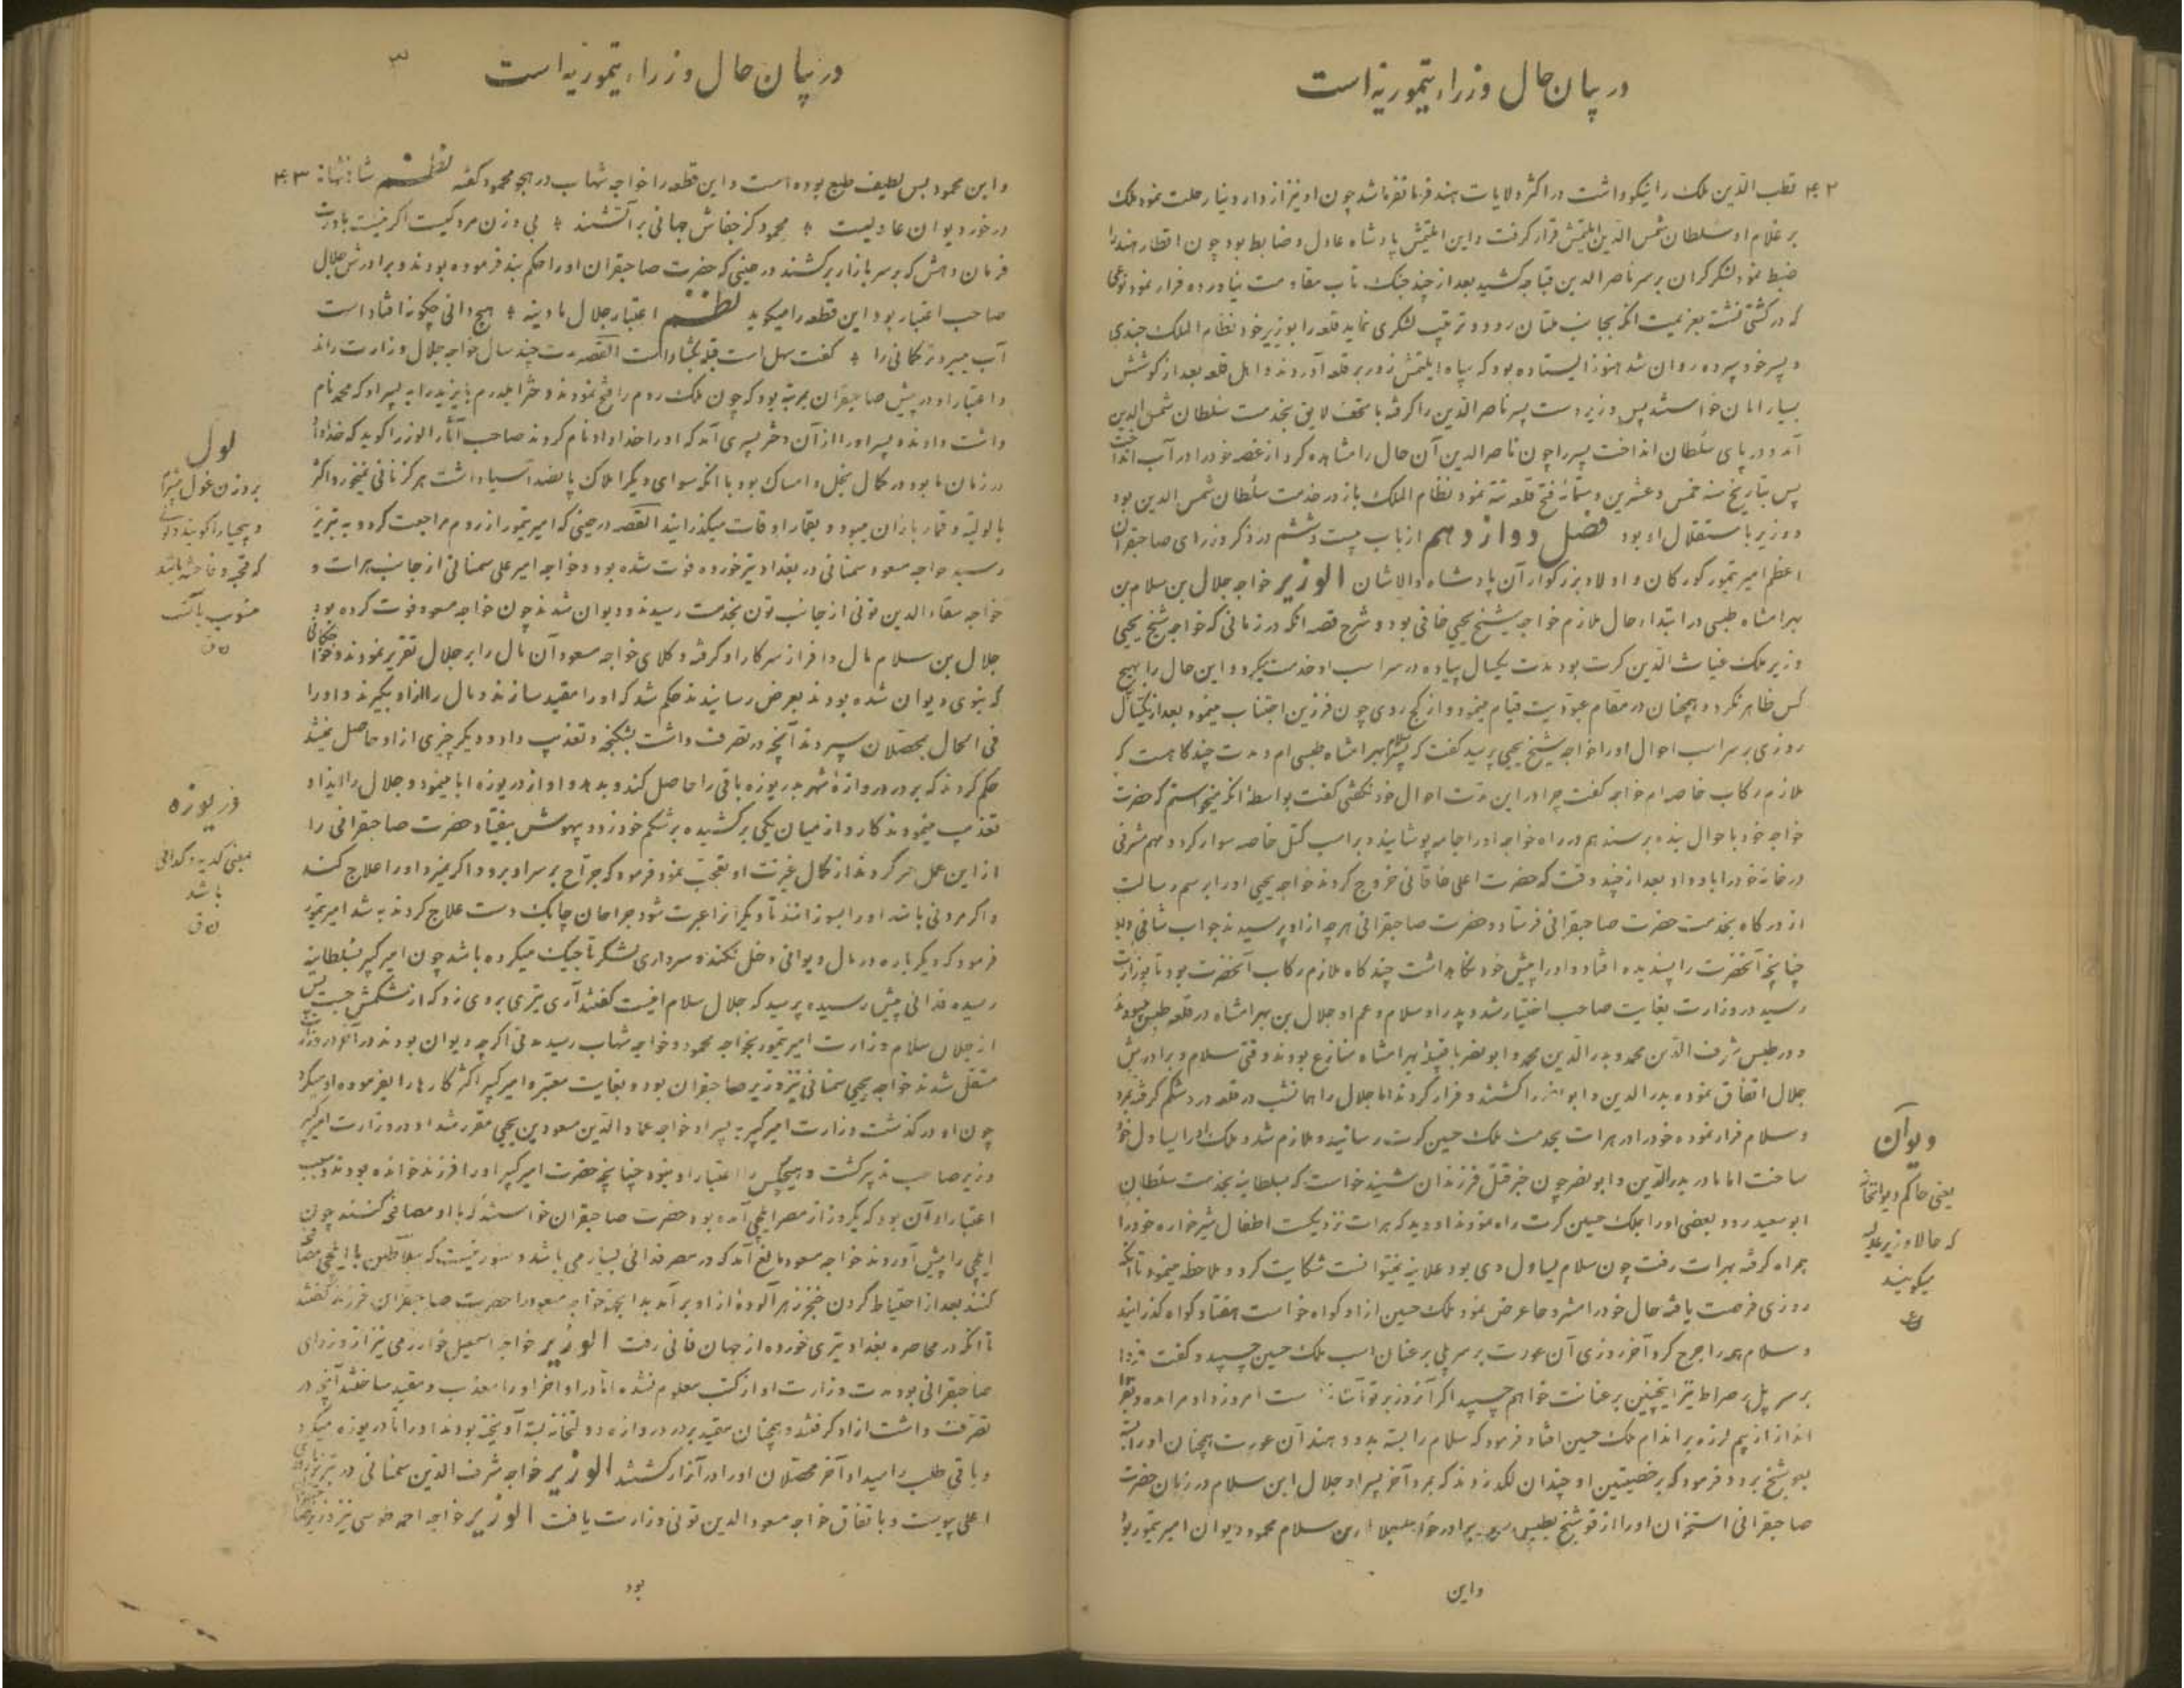 در بیان حال وزراء تیموریه است
۴۰۲ قطب الدین ملک را نیکو داشت در اکثر ولایات هند فرمانفرما شد چون او نیز از دار دنیا رحلت نمود ملک
بر غلام او سلطان شمس الدین ایلتمش قرار گرفت و این ایلتمش پادشاه عادل و ضابط بود چون اقطار هند را
ضبط نمود لشکر گران بر سر ناصر الدین قباجه کشید بعد از چند جنک تاب مقاومت نیاورده فرار نمود
که در کشتی نشسته بعزیمت انکه بجانب ملتان رود و ترتیب لشکری نماید قلعه را بوزیر خود نظام الملک جندی
و پسر خود سپرده روان شد هنوز ایستاده بود که سپاه ایلتمش زور بر قلعه آوردند و اهل قلعه بعد از کوشش
بسیار امان خواستند پس وزیر دست پسر ناصر الدین را گرفته با تحف لایق بخدمت سلطان شمس الدین
آمد و در پای سلطان انداخت پسر را چون ناصر الدین آن حال را مشاهده کرد از غصه خود را در آب انداخت
پس بتاریخ سنه خمس و عشرین و ستمائه فتح قلعه تته نمود نظام الملک باز در خدمت سلطان شمس الدین بود
و وزیر باستقلال او بود فصل دوازدهم از باب بیست و ششم در ذکر وزرای صاحبقران
اعظم امیر تیمور گورکان و اولاد بزرگوار آن پادشاه والاشان الوزیر خواجه جلال بن سلام بن
بهرامشاه طبسی در ابتداء حال ملازم خواجه شیخ یحیی خافی بود و شرح قصه انکه در زمانی که خواجه شیخ یحیی
وزیر ملک غیاث الدین کرت بود مدت یکسال پیاده در سر اسب او خدمت میکرد و این حال را بهیچ
کس ظاهر نکرد و همچنان در مقام عبودیت قیام مینمود و از کج روی چون فرزین اجتناب مینمود بعد از یکسال
روزی بر سر اسب احوال او را خواجه شیخ یحیی پرسید گفت که پسر سلام بهرامشاه طبسی ام و مدت چند گاهست که
ملازم رکاب خاصه ام خواجه گفت چرا در این مدت احوال خود نگفتی گفت بواسطه انکه میخواستم که حضرت
خواجه خود باحوال بنده برسند هم در راه خواجه او را جامه پوشانید و بر اسب کتل خاصه سوار کرد و مهم مشرفی
در خانه خود را باو داد بعد از چند وقت که حضرت اعلی خاقانی خروج کردند خواجه یحیی او را برسم رسالت
از درگاه بخدمت حضرت صاحبقرانی فرستاد و حضرت صاحبقرانی هرچه از او پرسیدند جواب شافی
چنانچه آنحضرت را پسندیده افتاد و او را پیش خود نگاهداشت چند گاه ملازم رکاب آنحضرت بود تا بوزارت
رسید در وزارت بغایت صاحب اختیار شد و پدر او سلام و عم او جلال بن بهرامشاه در قلعه طبس میبودند
و در طبس شرف الدین محمد و بدر الدین محمد و ابو نصر با بهرامشاه منازع بودند وقتی سلام و برادرش
جلال اتفاق نموده بدر الدین و ابو نصر را کشتند و فرار کردند اما جلال را همانشب در قلعه درد شکم گرفته بمرد
و سلام فرار نموده خود را در هرات بخدمت ملک حسین کرت رسانید و ملازم شد و ملک او را یساول خود
ساخت اما مادر بدر الدین و ابو نصر چون خبر قتل فرزندان شنید خواست که بسلطانیه بخدمت سلطان
ابو سعید رود بعضی او را بملک حسین کرت راه نمودند او دید که هرات نزدیکست اطفال شیرخواره خود را
همراه گرفته بهرات رفت چون سلام یساول وی بود علانیه نمیتوانست شکایت کرد و ملاحظه مینمود تا انکه
روزی فرصت یافته حال خود را مشروحا عرض نمود ملک حسین از او گواه خواست هفتاد گواه گذرانید
و سلام همه را جرح کرد آخر روزی آن عورت بر سر پلی بر عنان اسب ملک حسین چسپید و گفت فردا
بر سر پل صراط نیز اینچنین بر عنانت خواهم چسپید اگر آنروز بر تو است امروز داد مرا بده
انداز از بیم لرزه بر اندام ملک حسین افتاد فرمود که سلام را بسته بدو دهند آن عورت همچنان او را بسته
بپوشنج برد و فرمود که بر خصیتین او چندان لگد زدند که بمرد آخر پسر او جلال ابن سلام در زمان حضرت
صاحبقرانی استخوان او را از قوشنج بطبس برادر خواجه جلال بن سلام محمود دیوان امیر تیمور بود
دیوان
یعنی حاکم دیوانخانه
که حالا وزیر عدلیه
میگویند
و این
در بیان حال وزراء تیموریه است
و این محمود بس لطیف طبع بوده است و این قطعه را خواجه شهاب در هجو محمود گفته نظم ۴۰۳
در خورد دیوان عادلیست محمود کز جفاش جهانی بر آتشند بی وزن مردکیست اگر نیست باورت
فرمان دهش که بر سر بازار برکشند در حینی که حضرت صاحبقران او را حکم بند فرموده بودند و برادرش جلال
صاحب اختیار بود این قطعه را میگوید نظم اعتبار جلال مادینه هیچ دانی چگونه افتاد است
آب میبرد ترکمانی را گفت سهل است القصه مدت چند سال خواجه جلال وزارت راند
و اعتبار او در پیش صاحبقران بمرتبه بود که چون ملک روم را فتح نمودند دختر ایلدرم بایزید را به پسر او که محمد نام
داشت دادند و پسر او را از آن دختر پسری آمد که او را خداداد نام کردند صاحب آثار الوزرا گوید که خداداد
در زمان ما بود در کمال بخل و امساک بود با انکه سوای دیگر املاک پانصد آسیا داشت هرگز نانی نمیخورد اکثر
با لولیه و قمار بازان میبود و بقمار اوقات میگذرانید القصه در حینی که امیر تیمور از روم مراجعت کرد و به تبریز
رسید خواجه مسعود سمنانی در بغداد تیر خورده فوت شده بود و خواجه امیر علی سمنانی از جانب هرات و
خواجه سقاء الدین تونی از جانب تون بخدمت رسیدند و دیوان شدند چون خواجه مسعود فوت کرده بود
جلال بن سلام مال وافر از سرکار او گرفته وکلای خواجه مسعود آن مال را بر جلال تقریر نمودند و خواجگانی
که بنوی دیوان شده بودند بعرض رسانیدند حکم شد که او را مقید سازند و مال را از او بگیرند و او را
فی الحال بمحصلان سپردند آنچه در تصرف داشت بشکنجه و تعذیب داد و دیگر چیزی از او حاصل نمیشد
حکم کردند که بر در دروازهٔ شهر بدریوزه باقی را حاصل کند و بدهد و او از دریوزه ابا مینمود و جلال را ایذا و
تعذیب مینمودند کارد از میان یکی برکشیده بر شکم خود زد و بیهوش بیفتاد حضرت صاحبقرانی را
از این عمل خبر کردند از کمال غیرت او تعجب نمود فرمود که جراح بر سر او برود اگر نمیرد او را علاج کنند
و اگر مردنی باشد او را بسوزانند تا دیگرانرا عبرت شود جراحان چابک دست علاج کردند به شد امیر تیمور
فرمود که دیگر باره در مال دیوانی دخل نکند و سرداری لشکر تاجیک میکرده باشد چون امیر کبیر بسلطانیه
رسیده فدائی پیش رسیده پرسید که جلال سلام اینست گفتند آری تیری بروی زد که از شکمش جست پس
از جلال سلام وزارت امیر تیمور بخواجه محمود و خواجه شهاب رسید اگر چه دیوان بودند در آخر در وزارت
مستقل شدند خواجه یحیی سمنانی نیز وزیر صاحبقران بود و بغایت معتبر و امیر کبیر اکثر کارها را بفرموده او میکرد
چون او در گذشت وزارت امیر کبیر به پسر او خواجه عماد الدین مسعود بن یحیی مقرر شد او در وزارت امیر کبیر
وزیر صاحب تدبیر گشت و هیچکس را اعتبار او نبود چنانچه حضرت امیر کبیر او را فرزند خوانده بودند و سبب
اعتبار او آن بود که یکروز از مصر ایلچی آمده بود حضرت صاحبقران خواستند که با او مصافحه کنند چون
ایلچی را پیش آوردند خواجه مسعود مانع آمد که در مصر فدائی بسیار می باشد دستور نیست که سلاطین با ایلچی مصافحه
کنند بعد از احتیاط کردن خنجر زهر آلوده از او بر آمد بدانجهة خواجه مسعود را حضرت صاحبقران فرزند گفتند
تا انکه در محاصره بغداد تیری خورده از جهان فانی رفت الوزیر خواجه اسمعیل خوارزمی نیز از وزرای
صاحبقرانی بود مدت وزارت او از کتب معلوم نشده اما در اواخر او را معذب و مقید ساختند آنچه در
تصرف داشت از او گرفتند و همچنان مقید بر در دروازه دولتخانه بسته آویخته بودند او را تا دریوزه میکرد
و باقی طلب را میداد آخر محصلان او را در آزار کشتند الوزیر خواجه شرف الدین سمنانی در تبریز
اعلی پیوست و باتفاق خواجه مسعود الدین تونی وزارت یافت الوزیر خواجه احمد طوسی نیز وزیر
لول
بر وزن غول بیشرم
و بیحیا را گویند
که قحبه و فاحشه باشد
منسوب بآنست
دریوزه
بمعنی کدیه و گدائی
باشد
بود